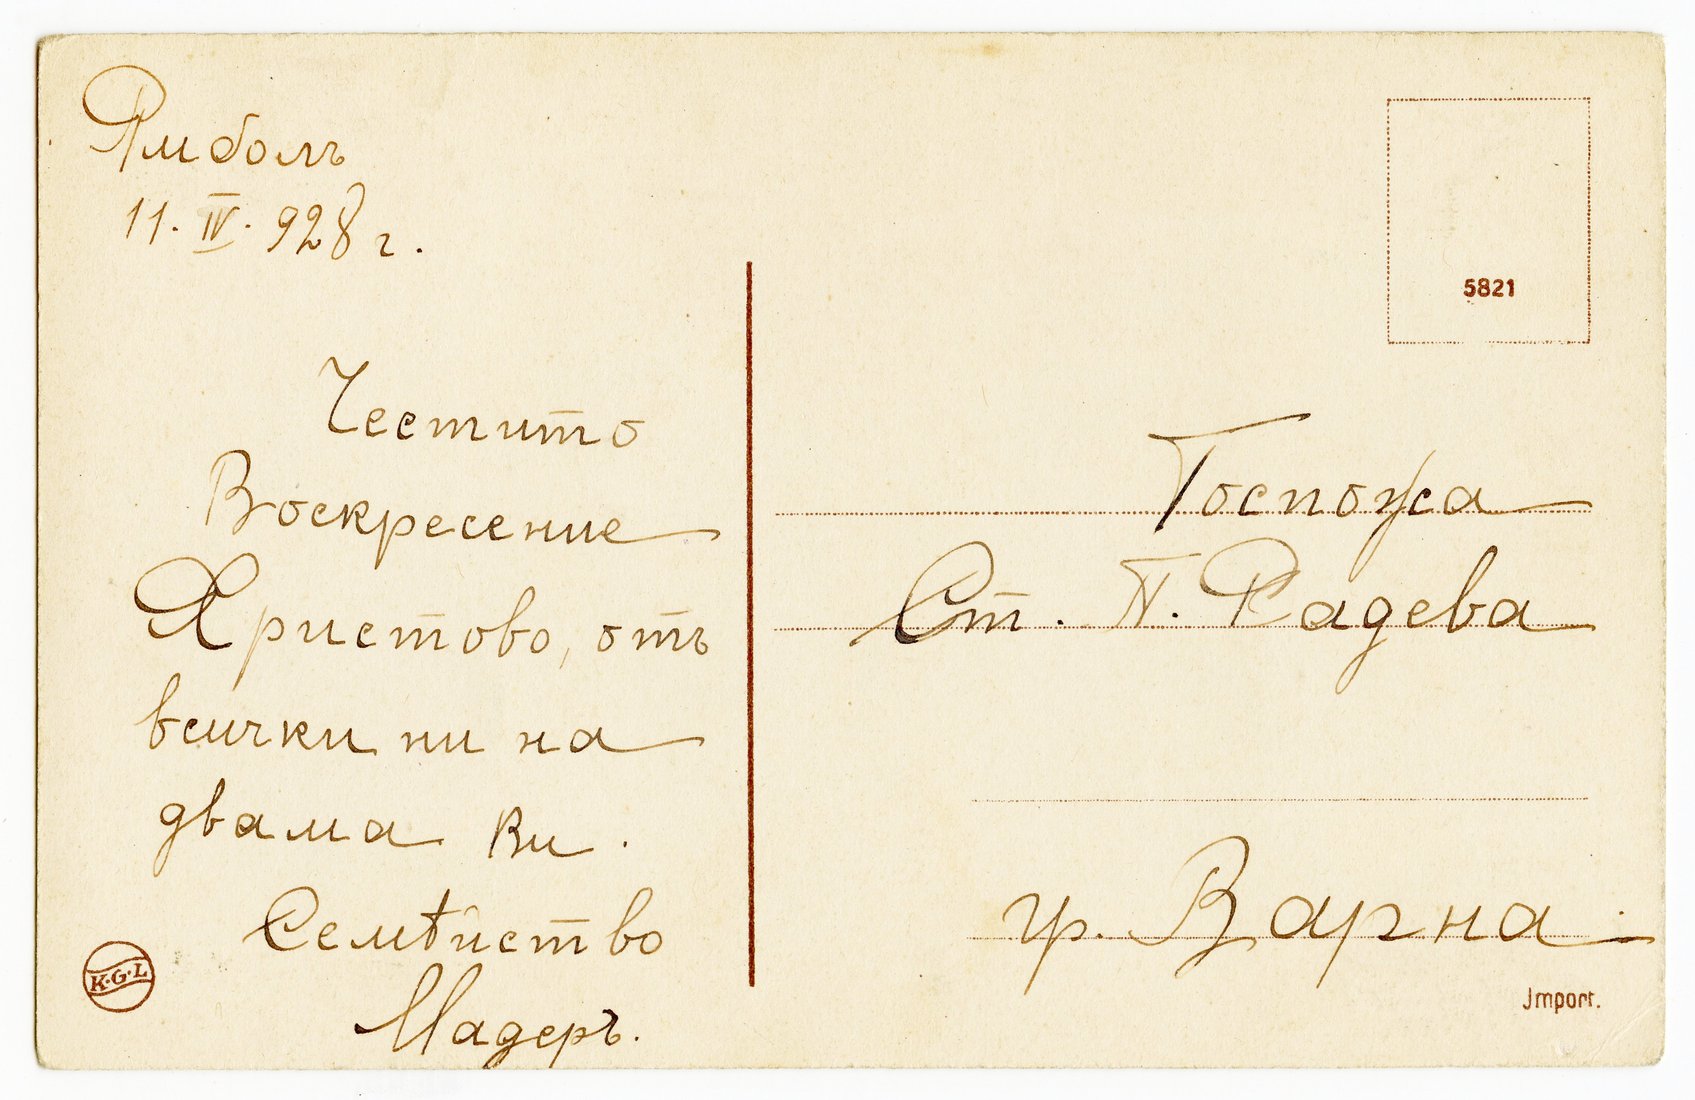 Ямболъ
11. IV. 928 г.
Честито
Воскресение
Христово, отъ
всички ни на
двама Ви.
Семѣйство
Мадеръ.
K·G·L
5821
Госпожа
Ст. П. Радева
гр. Варна
Import.